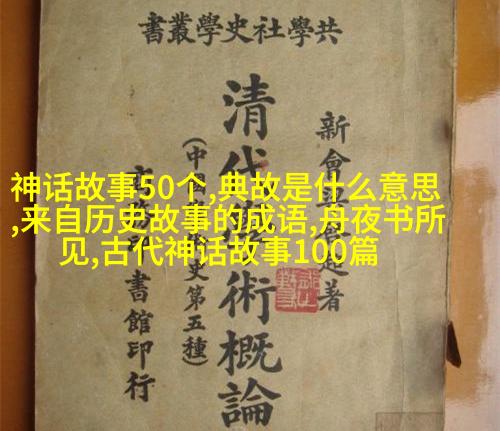 共學社史學叢書
新會
著
清代學術概論
(中國
史第五種)
書館印行
神话故事50个,典故是什么意思
,来自历史故事的成语,舟夜书所
见,古代神话故事100篇